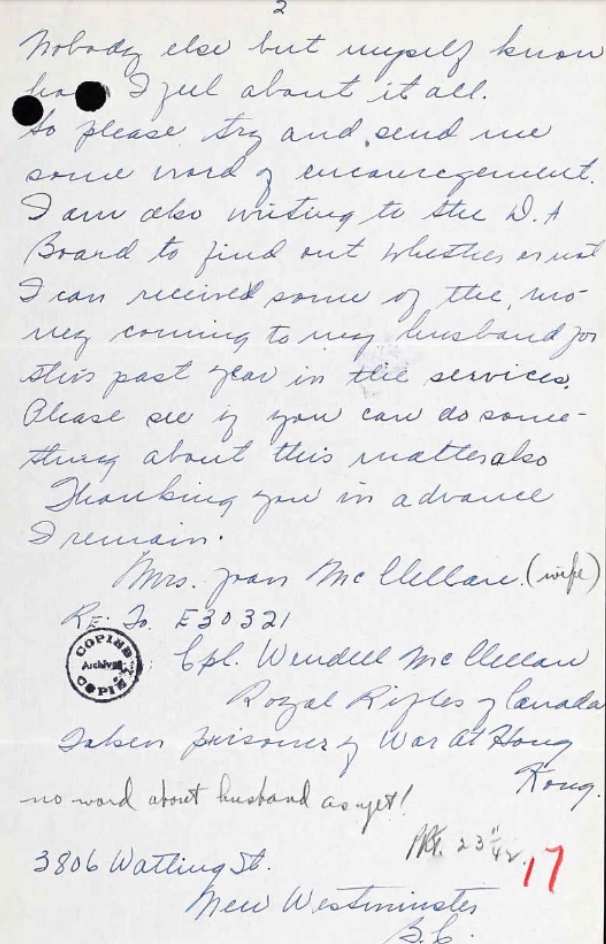 2
Nobody else but myself know
how I feel about it all.
So please try and send me
some word of encouragement.
I am also writing to the D.A
Board to find out whether or not
I can received some of the, mo-
ney coming to my husband for
this past year in the services.
Please see if you can do some-
thing about this matter also
Thanking you in advance
I remain.
Mrs. Joan McClellan. (wife)
RE: To. E30321
Cpl. Wendell McClellan
Royal Rifles of Canada
Taken prisoner of War at Hong
Kong.
no word about husband as yet!
COPIED
Archives
COPIÉ
23
17
3806 Watling St.
New Westminster
B.C.